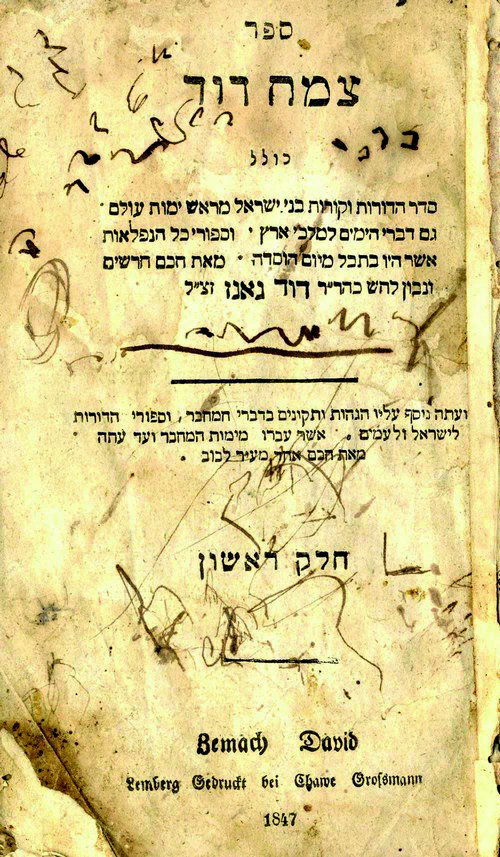 ספר
צמח דוד
כולל
סדר הדורות וקורות בני ישראל מראש ימות עולם
גם דברי הימים למלכי ארץ וספורי כל הנפלאות
אשר היו בתבל מיום הוסדה מאת חכם חרשים
ונבון לחש כהר״ר דוד גאנז זצ״ל
ועתה ניסף עליו הגהות ותקונים בדברי המחבר, וספורי הדורות
לישראל ולעמים אשר עברו מימות המחבר ועד עתה
מאת חכם אחד מעיר לבוב
חלק ראשון
Zemach David
Lemberg Gedruckt bei Chawe Grossmann
1847